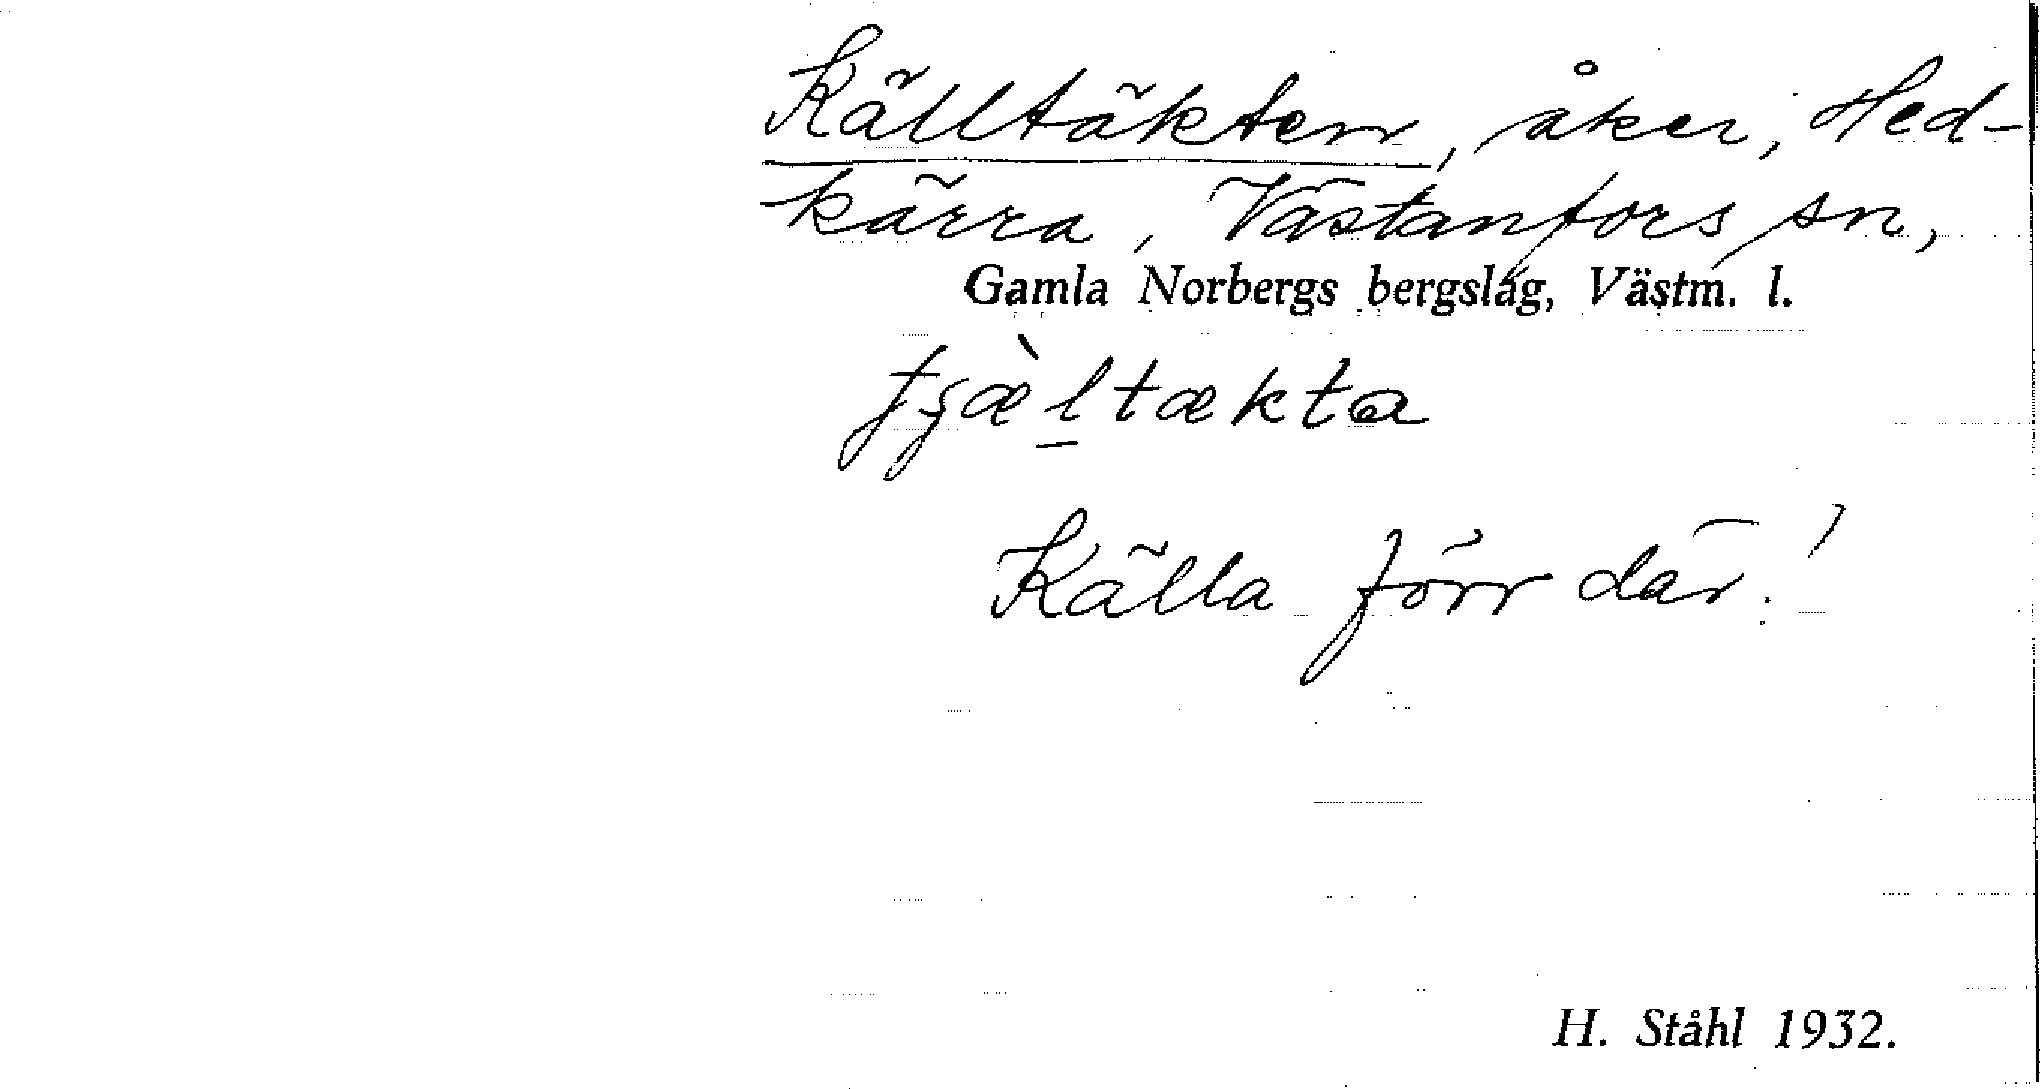 Källtäkten, åker, Hed-
kärra, Västanfors sn,
Gamla Norbergs bergslag, Västm. l.
tjæ̀ltækta
Källa förr där!
H. Ståhl 1932.